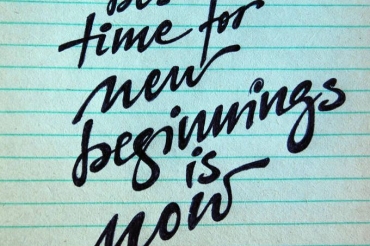 time for
new
beginnings
is
now